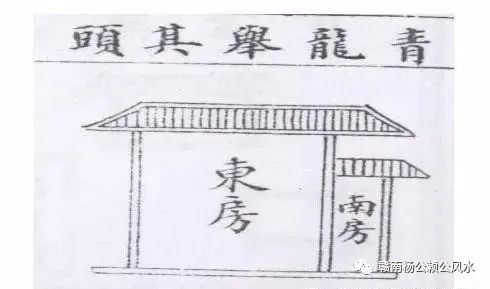 青龍舉其頭
東房
南房
赣南杨公濑公风水